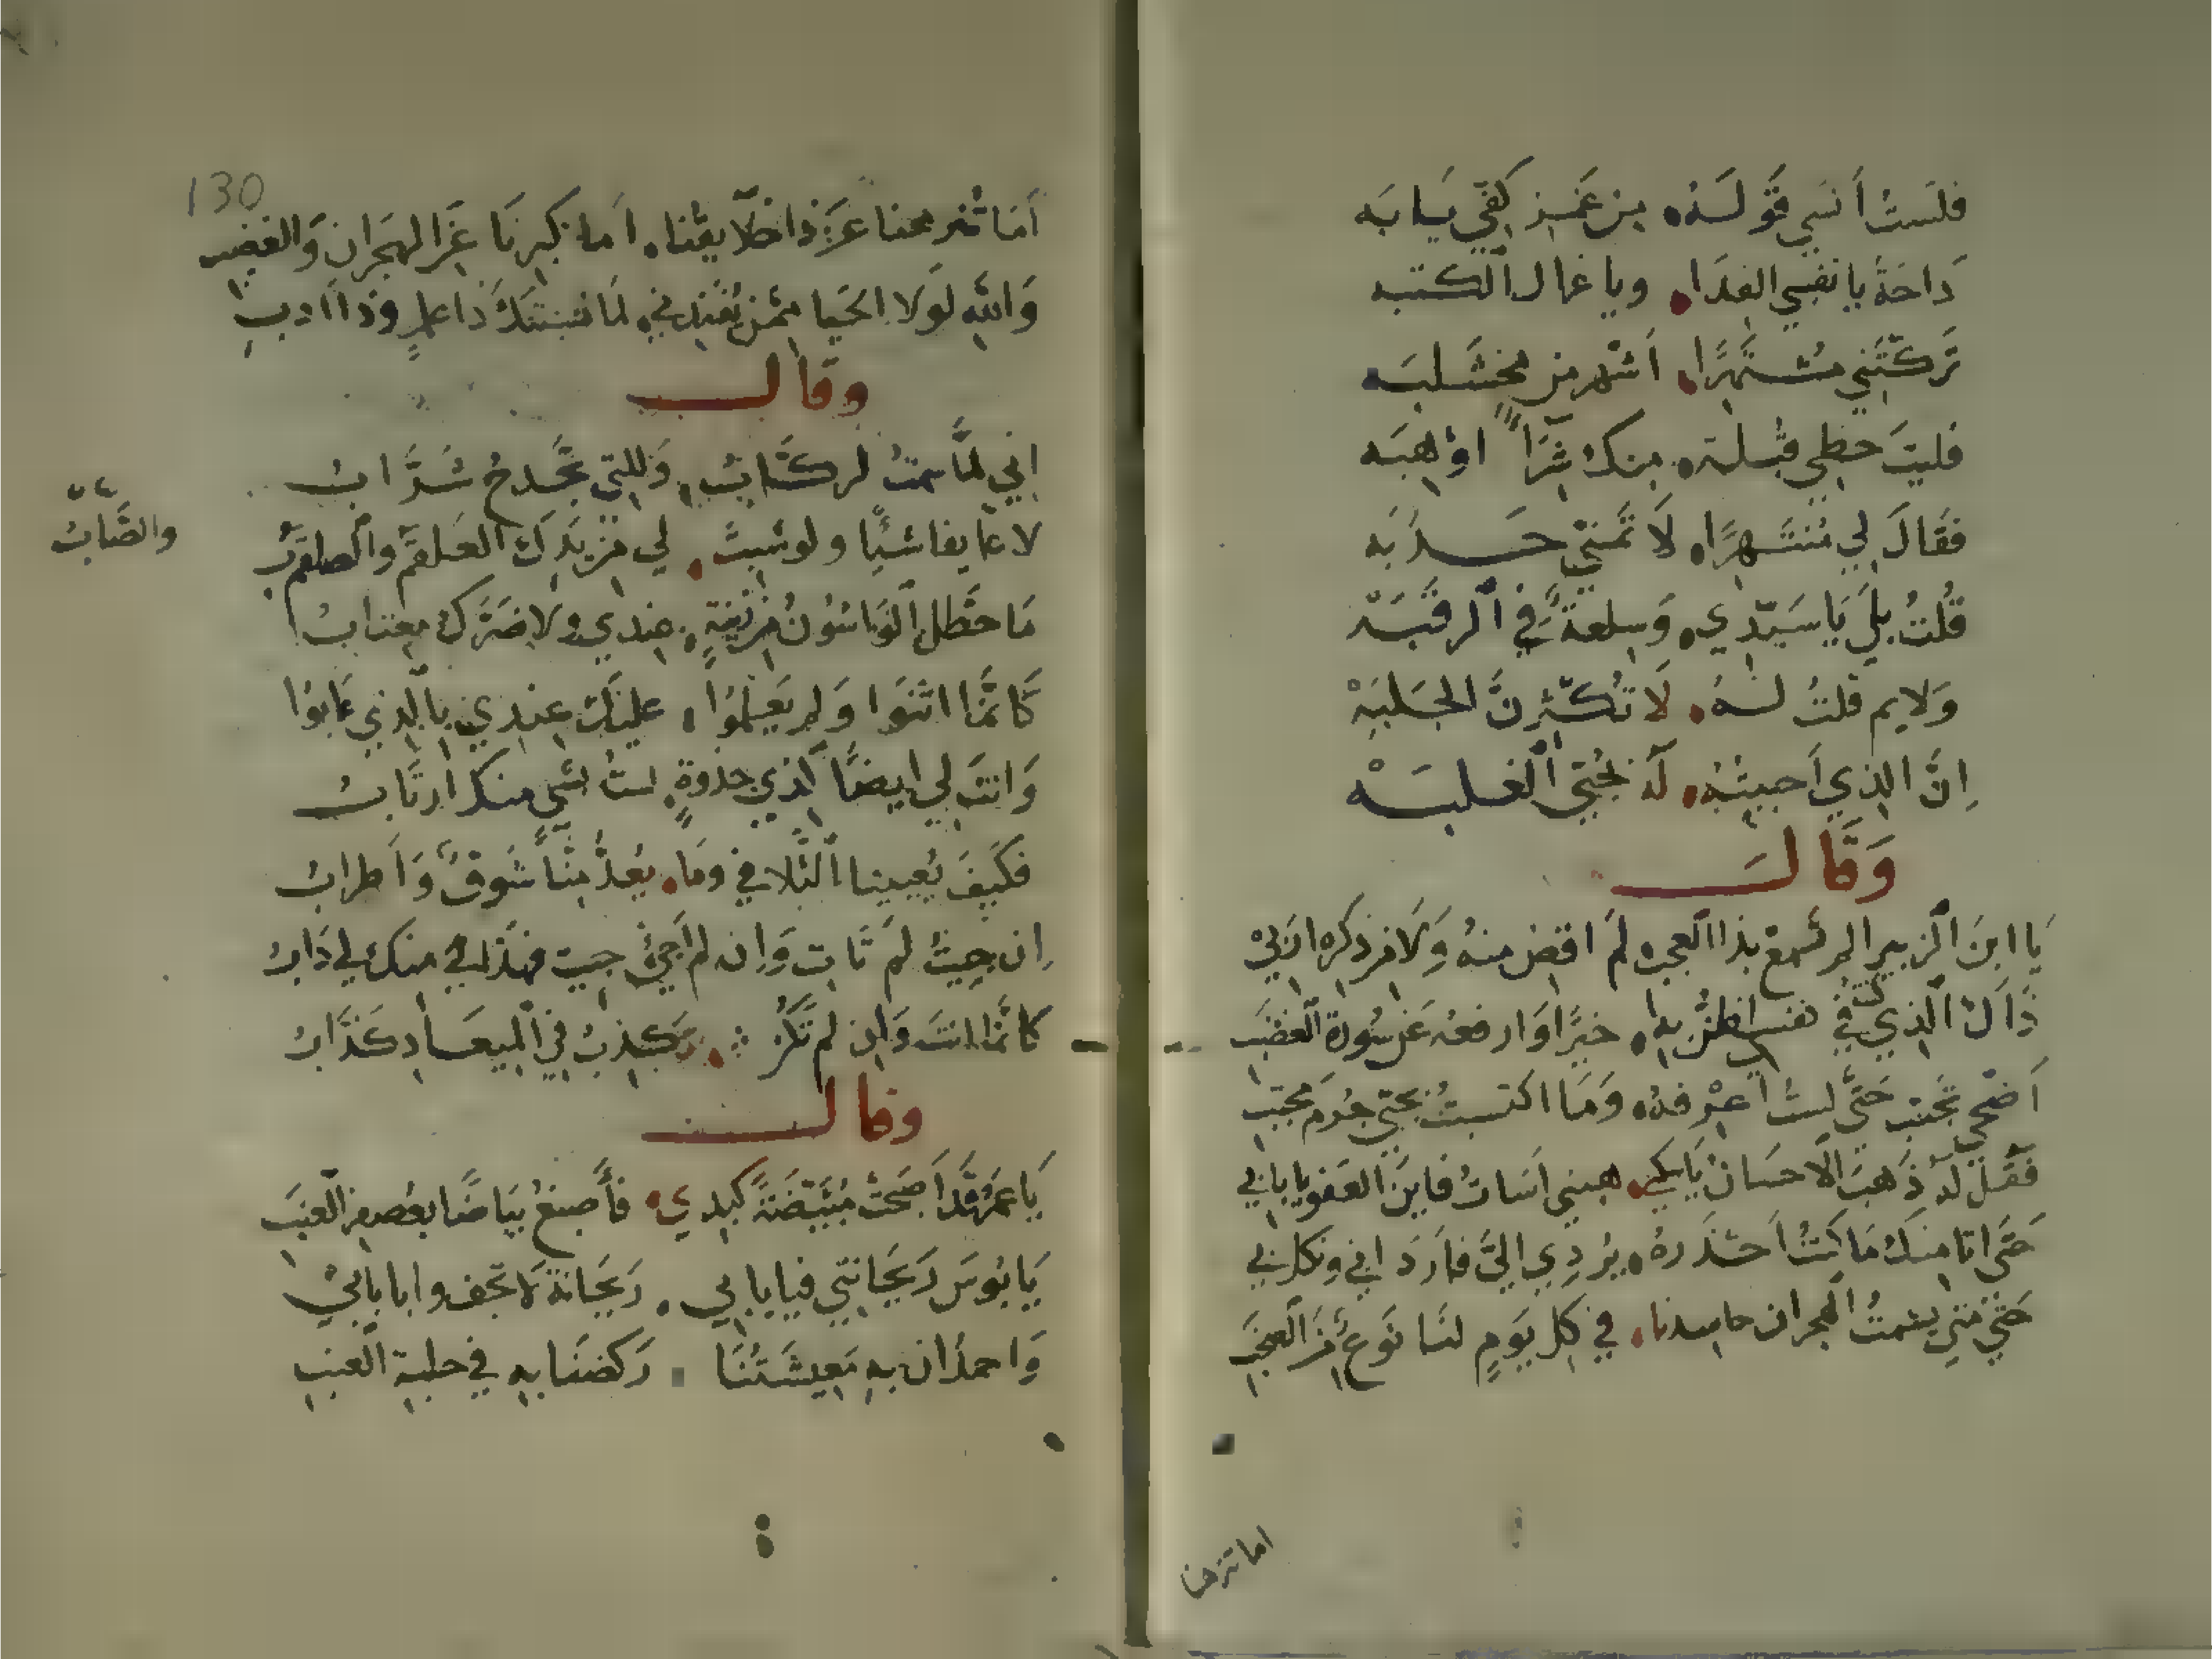 فلست أنسي قولَهُ من غمز كفي يابه
دَاحَةُ يا نفسي الفدَاء ويا غزال الكتبه
تركتَني مشتهرًا أشهر من مخشلبه
فليتَ حظي قبلة منك شرًا أو هبه
فقالَ لي منتهرًا لا تمنّي حسدُ به
قُلتُ بلي يا سيّدي وسلعة في الرقبَهْ
ولايم قلتُ لهُ لا تُكثرنَّ الجلبَهْ
إنَّ الذي أحببتُه لَه بحُبّي الغلبَهْ
وقال
يا ابنَ الزبير ألم تسمع بذا العجب لم أقض منهُ ولا من ذكره أربي
ذاك الذي كنتُ في نفسي أظنُّ به خيرًا وأرفعه عن سورة الغضب
أضحي تجنّب حتّي لست أعرفه وما اكتسبتُ بحبّي جرم مجتنب
فقل له ذهبَ الإحسانُ يا سكني هبني أسأتُ فأينَ العفو يا بابي
حتّي أتا منك ما كنتُ أحذرهُ يردي إليَّ فأردَاني ونكل بي
حتّي متي يشمتُ الهجران حاسدنا في كل يومٍ لنا نوع من العجب
اما ترحنا
130
وَالله لولا الحَيا ممّن يُفنّدني لما نسبتك ذا علمٍ وذا أدب
وقال
إني لما سمتُ لركّابُ وللتي تجدح شرّابُ
لا عايفا شيًا ولو شيبَ لي من يدك العلقم والصاب
والصَّابُ
ما حطك الواشون من رتبةٍ عندي ولا ضرّك مغتابُ
كأنّما اثنوا ولم يعلموا عليك عندي بالذي عابُوا
وانت لي ايضًا كذي جذوةٍ لست بشيٍ منك ارتابُ
فكيفَ يُعيينا التلافي وما يُعدُّ منّا شوقٌ وأطرابُ
إن جيتُ لم تات وإن لم أجئ جيت فهذا لي منك لي دَابُ
كأنّما أنتَ وإن لم تكن تكذبُ في الميعاد كذّابُ
وقال
يا عمرُ قد أصبحتْ مُبْيَضّةً كبدي فأصبغْ بياضًا بعصفر العنَب
يا بُوسَ ريحانتي فيا يا بابي ريحانة لا تجف وا با بابي
واحمدان به معيشتُنا ركضنا به في حلبة العنب